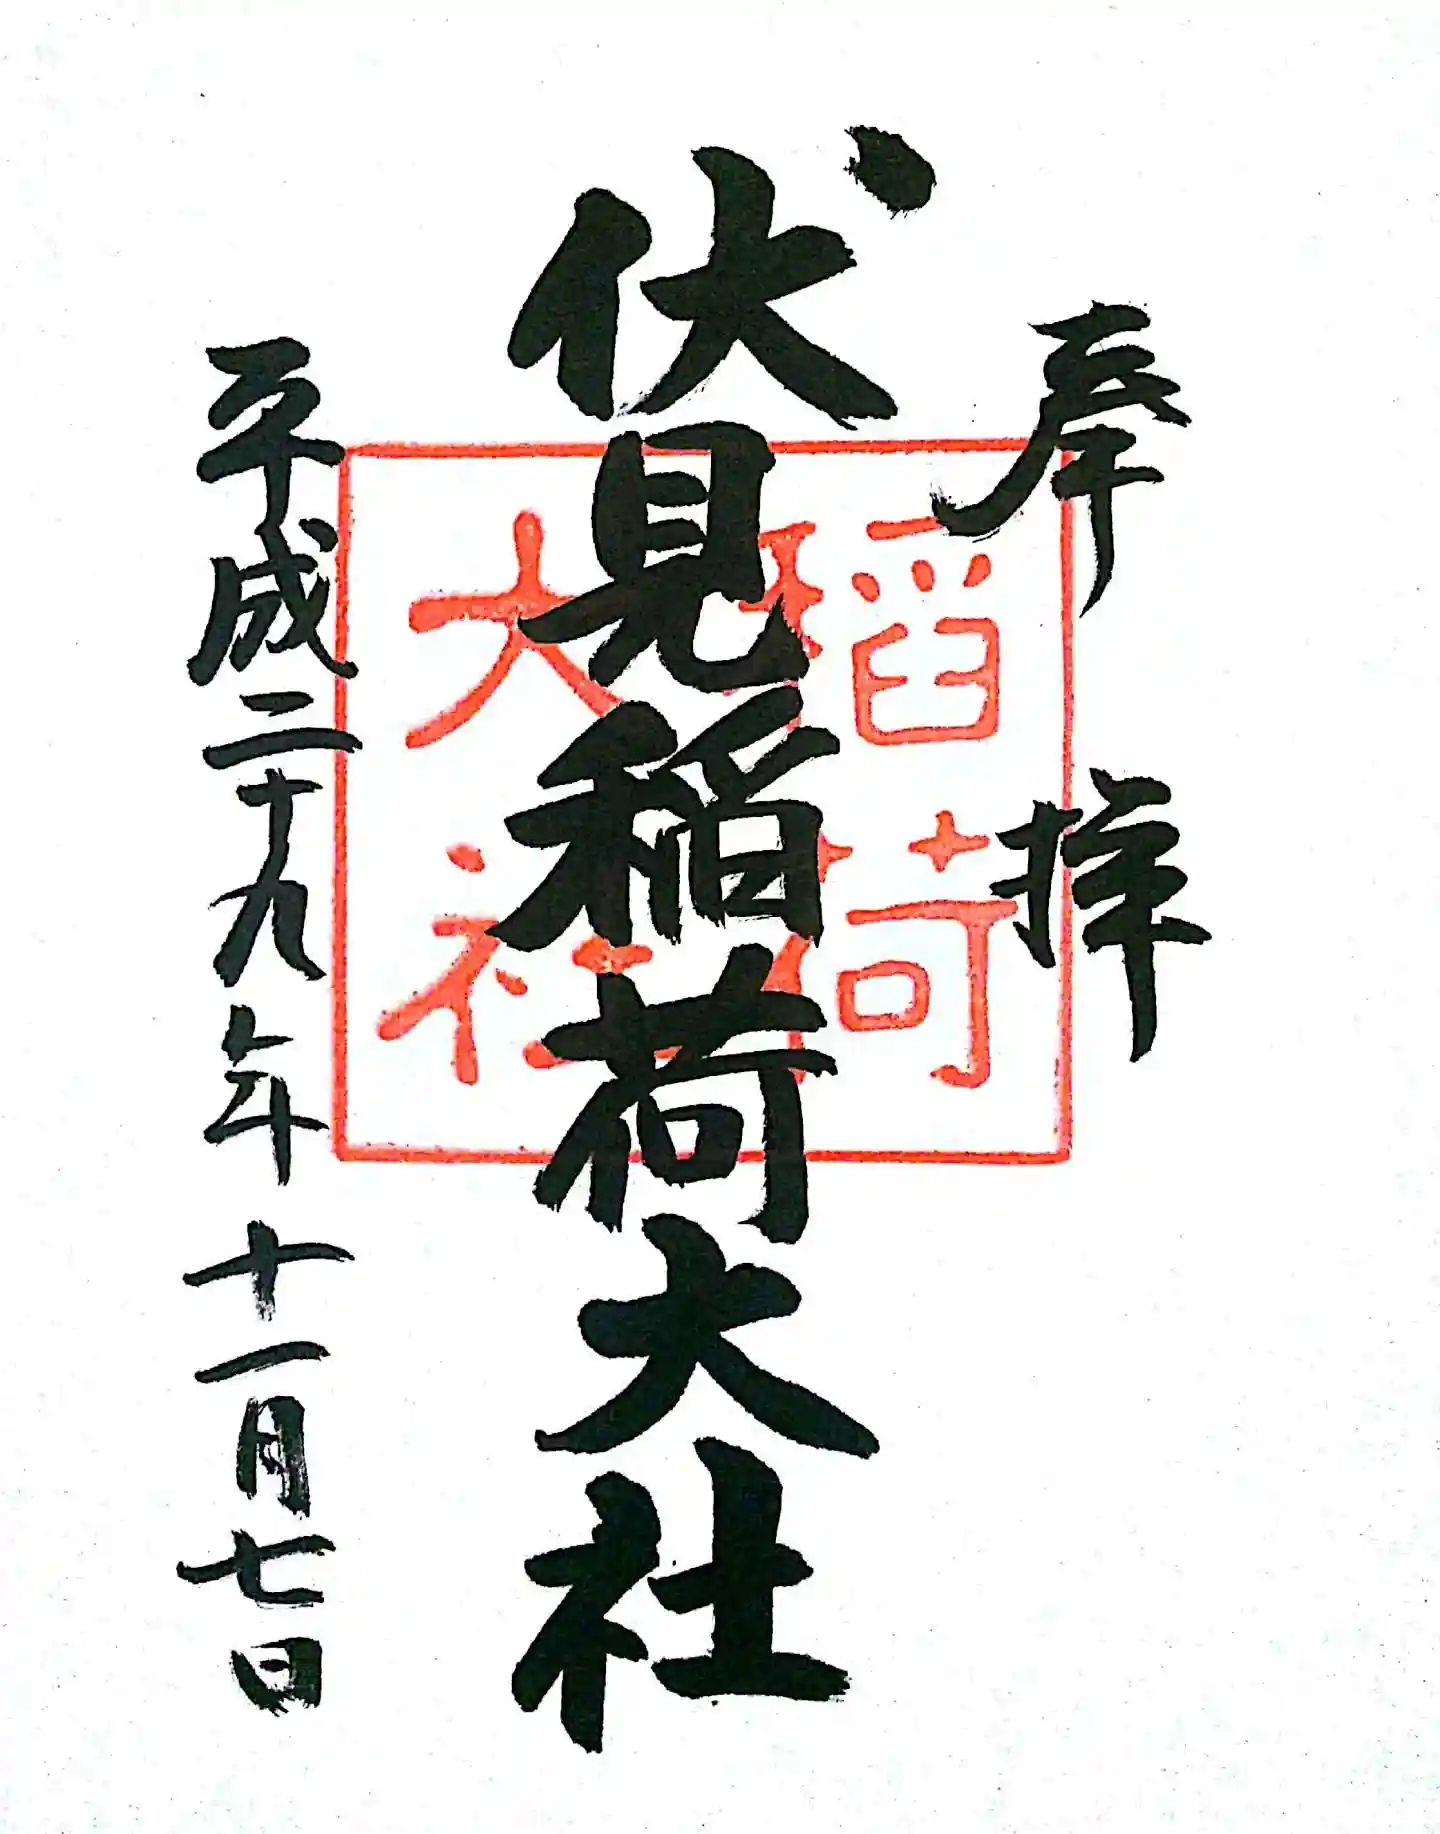 奉拝
伏見稲荷大社
平成二十九年十一月七日
稲荷
大社